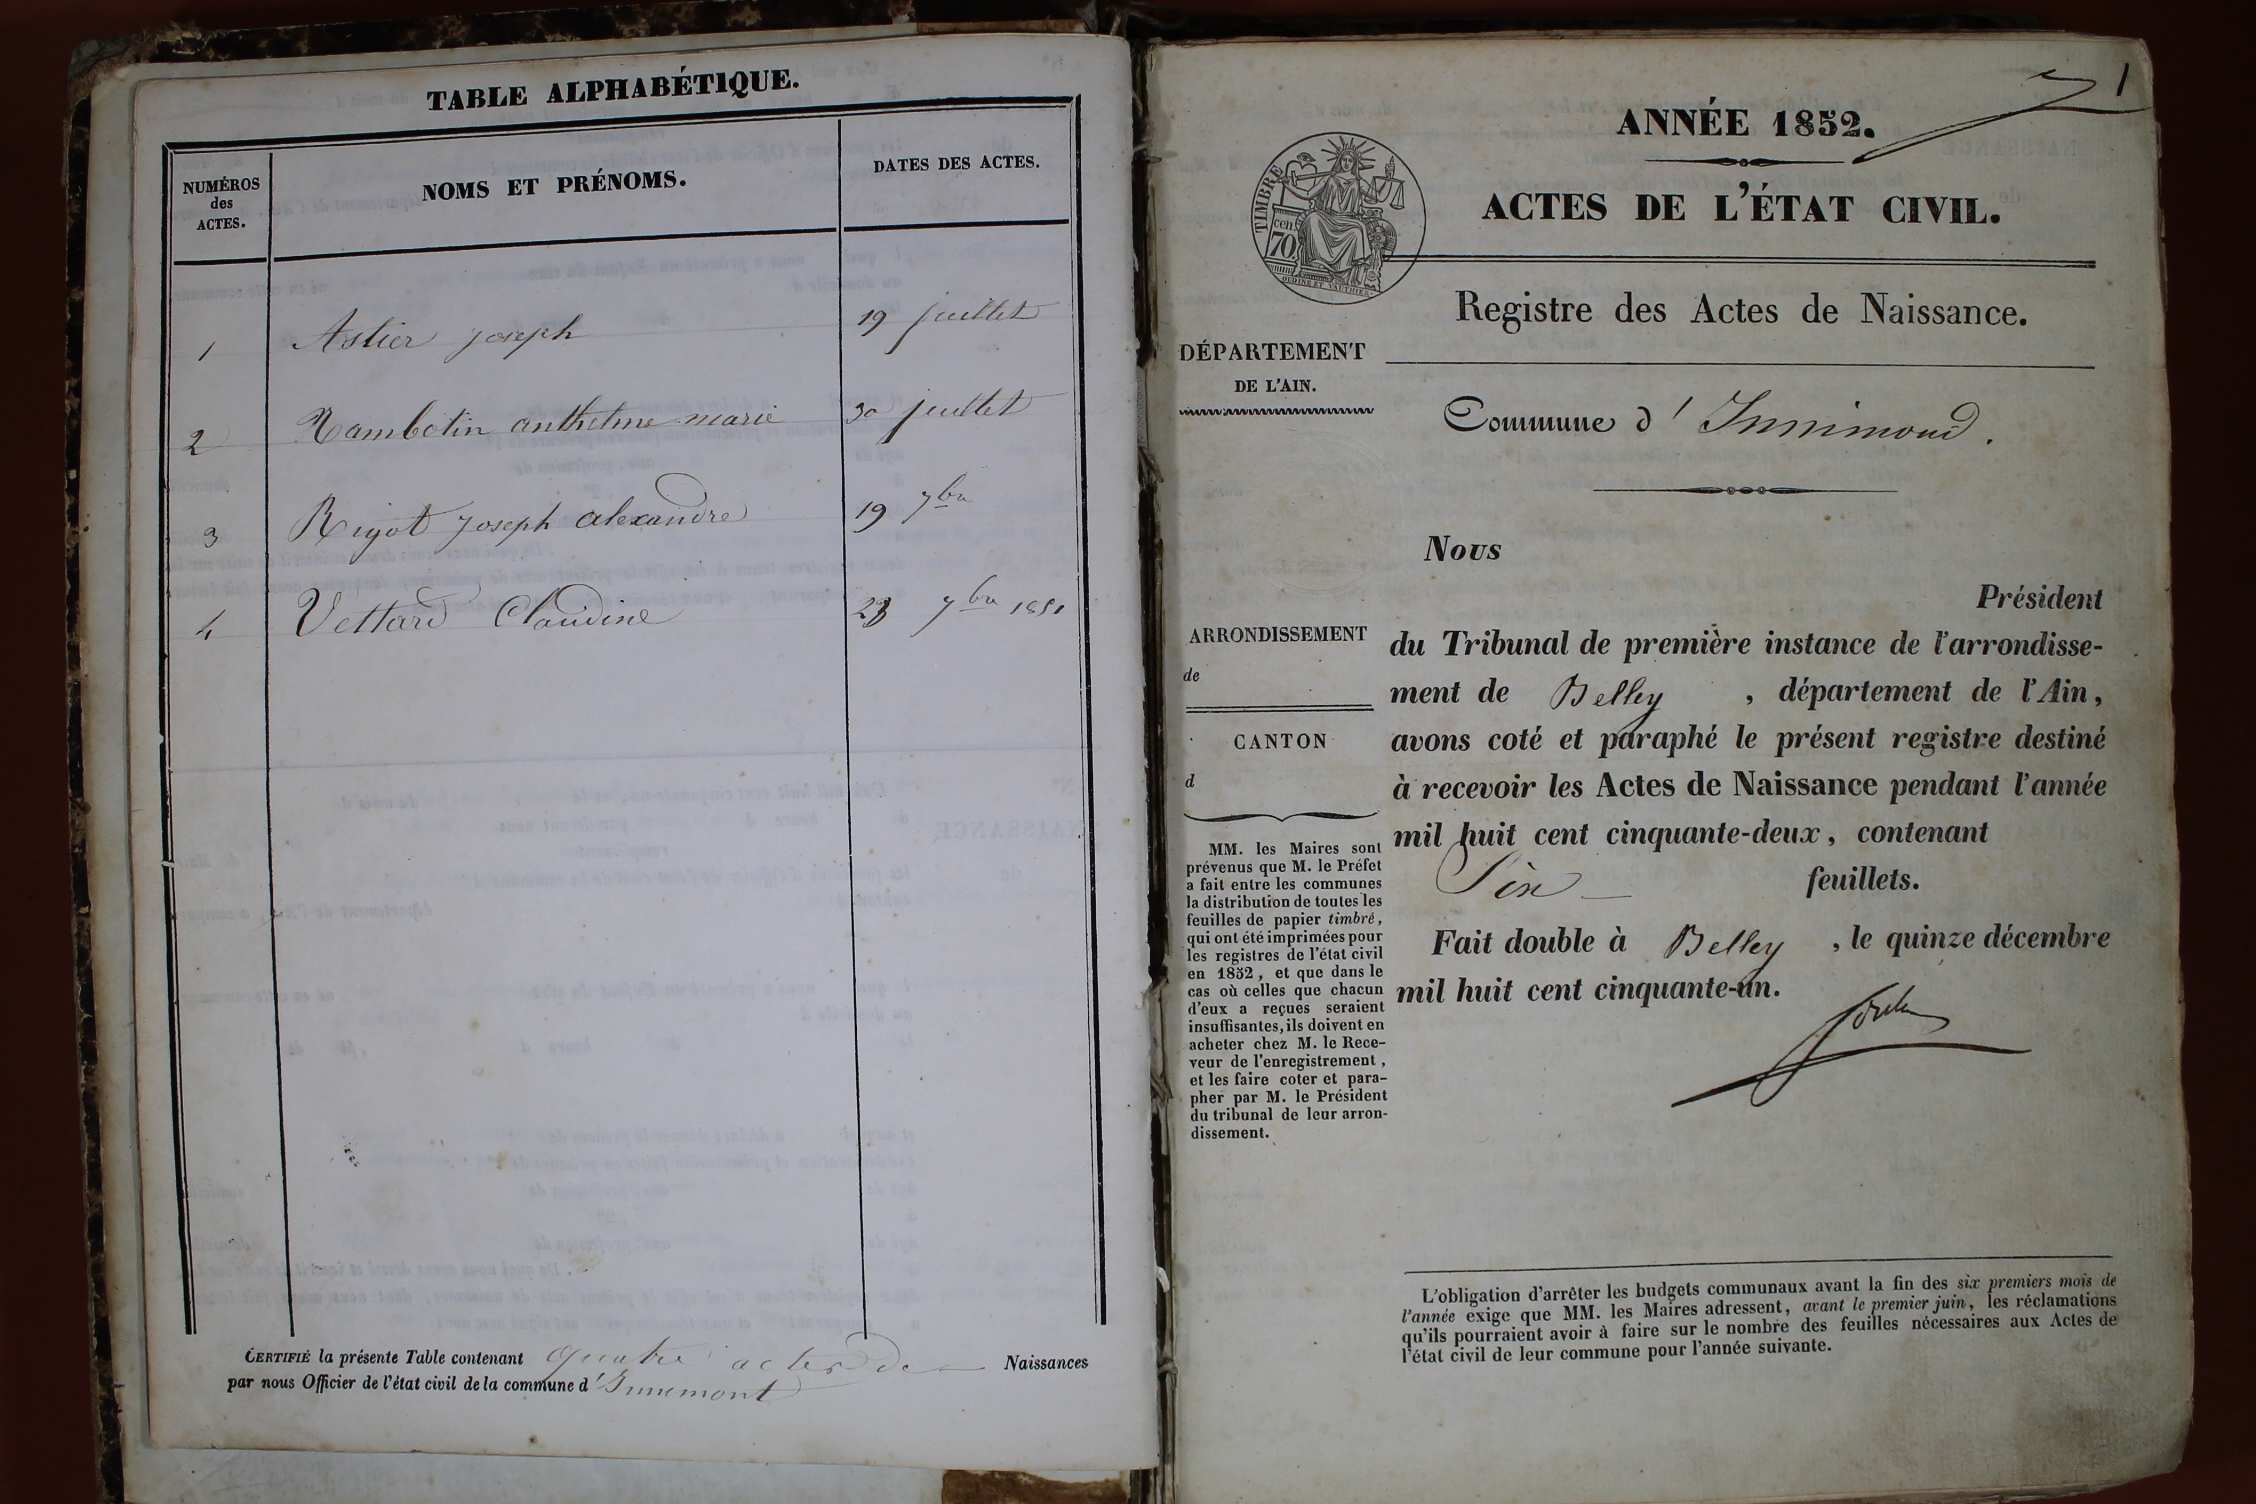 TABLE ALPHABÉTIQUE.
NUMÉROS
des
ACTES.
NOMS ET PRÉNOMS.
DATES DES ACTES.
1 Astier joseph 19 juillet
2 Rambotin anthelme marie 30 juillet
3 Rigot joseph alexandre 19 7bre
4 Vettard Claudine 23 7bre 1851
CERTIFIÉ la présente Table contenant quatre actes de Naissances
par nous Officier de l'état civil de la commune d'Innimont
1
ANNÉE 1852.
ACTES DE L'ÉTAT CIVIL.
TIMBRE
70 cen.
OUDINÉ ET VAUTHIER
Registre des Actes de Naissance.
DÉPARTEMENT
DE L'AIN.
Commune d'Innimond.
Nous
Président
du Tribunal de première instance de l'arrondisse-
ment de Belley, département de l'Ain,
avons coté et paraphé le présent registre destiné
à recevoir les Actes de Naissance pendant l'année
mil huit cent cinquante-deux, contenant
Six feuillets.
Fait double à Belley, le quinze décembre
mil huit cent cinquante-un.
ARRONDISSEMENT
de
CANTON
d
MM. les Maires sont
prévenus que M. le Préfet
a fait entre les communes
la distribution de toutes les
feuilles de papier timbré,
qui ont été imprimées pour
les registres de l'état civil
en 1852, et que dans le
cas où celles que chacun
d'eux a reçues seraient
insuffisantes, ils doivent en
acheter chez M. le Rece-
veur de l'enregistrement,
et les faire coter et para-
pher par M. le Président
du tribunal de leur arron-
dissement.
L'obligation d'arrêter les budgets communaux avant la fin des six premiers mois de
l'année exige que MM. les Maires adressent, avant le premier juin, les réclamations
qu'ils pourraient avoir à faire sur le nombre des feuilles nécessaires aux Actes de
l'état civil de leur commune pour l'année suivante.